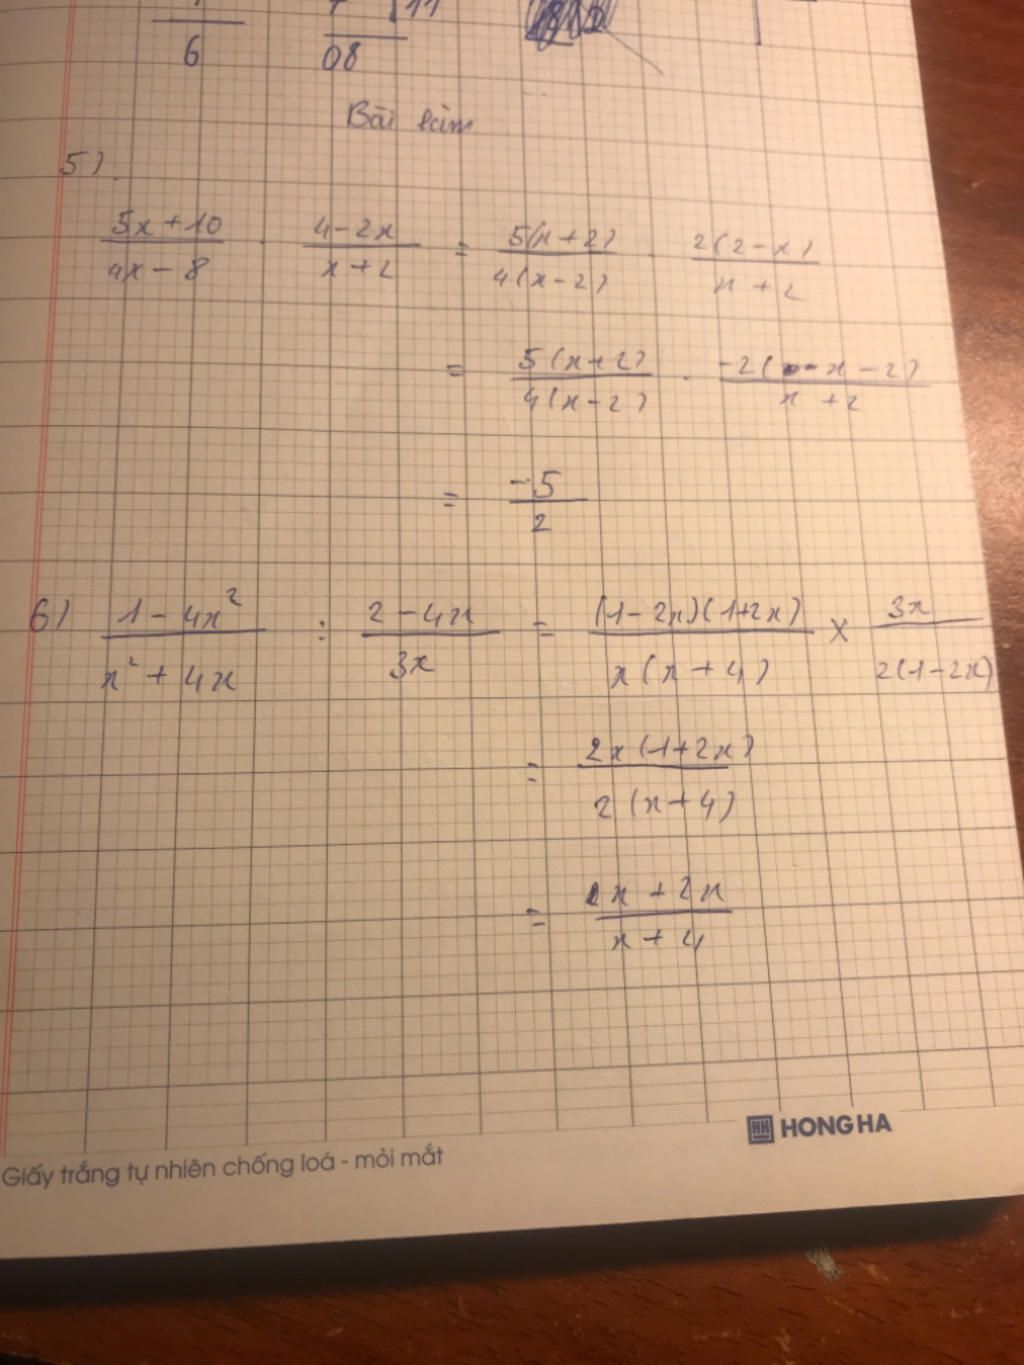 6 08
Bài làm
5)
5x+10 / 4x-8 . 4-2x / x+2 = 5(x+2) / 4(x-2) . 2(2-x) / x+2
= 5(x+2) / 4(x-2) . -2(x-2) / x+2
= -5 / 2
6) 1-4x² / x²+4x : 2-4x / 3x = (1-2x)(1+2x) / x(x+4) × 3x / 2(1-2x)
= 2x(1+2x) / 2(x+4)
= x+2x / x+4
HONG HA
Giấy trắng tự nhiên chống loá - mỏi mắt